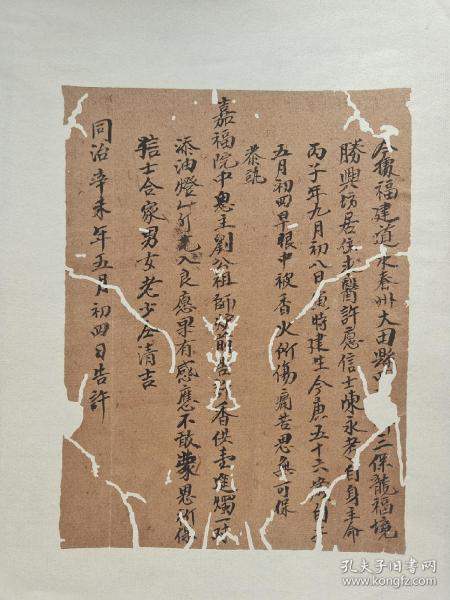 今據福建道永春州大田縣三保龍福境
勝興坊居住求醫許愿信士陳永孝自身本命
丙子年九月初八日寅時建生今庚五十六歲
五月初四早眼中被香火所傷痛苦思無可保
恭詣
嘉福院中恩主劉公祖師爐前告許香供壹進燭一对
添油燈入良愿果有感應不敢蒙恩
信士合家男女老少全清吉
同治辛未年五月初四日告許
孔夫子旧书网
www.kongfz.com